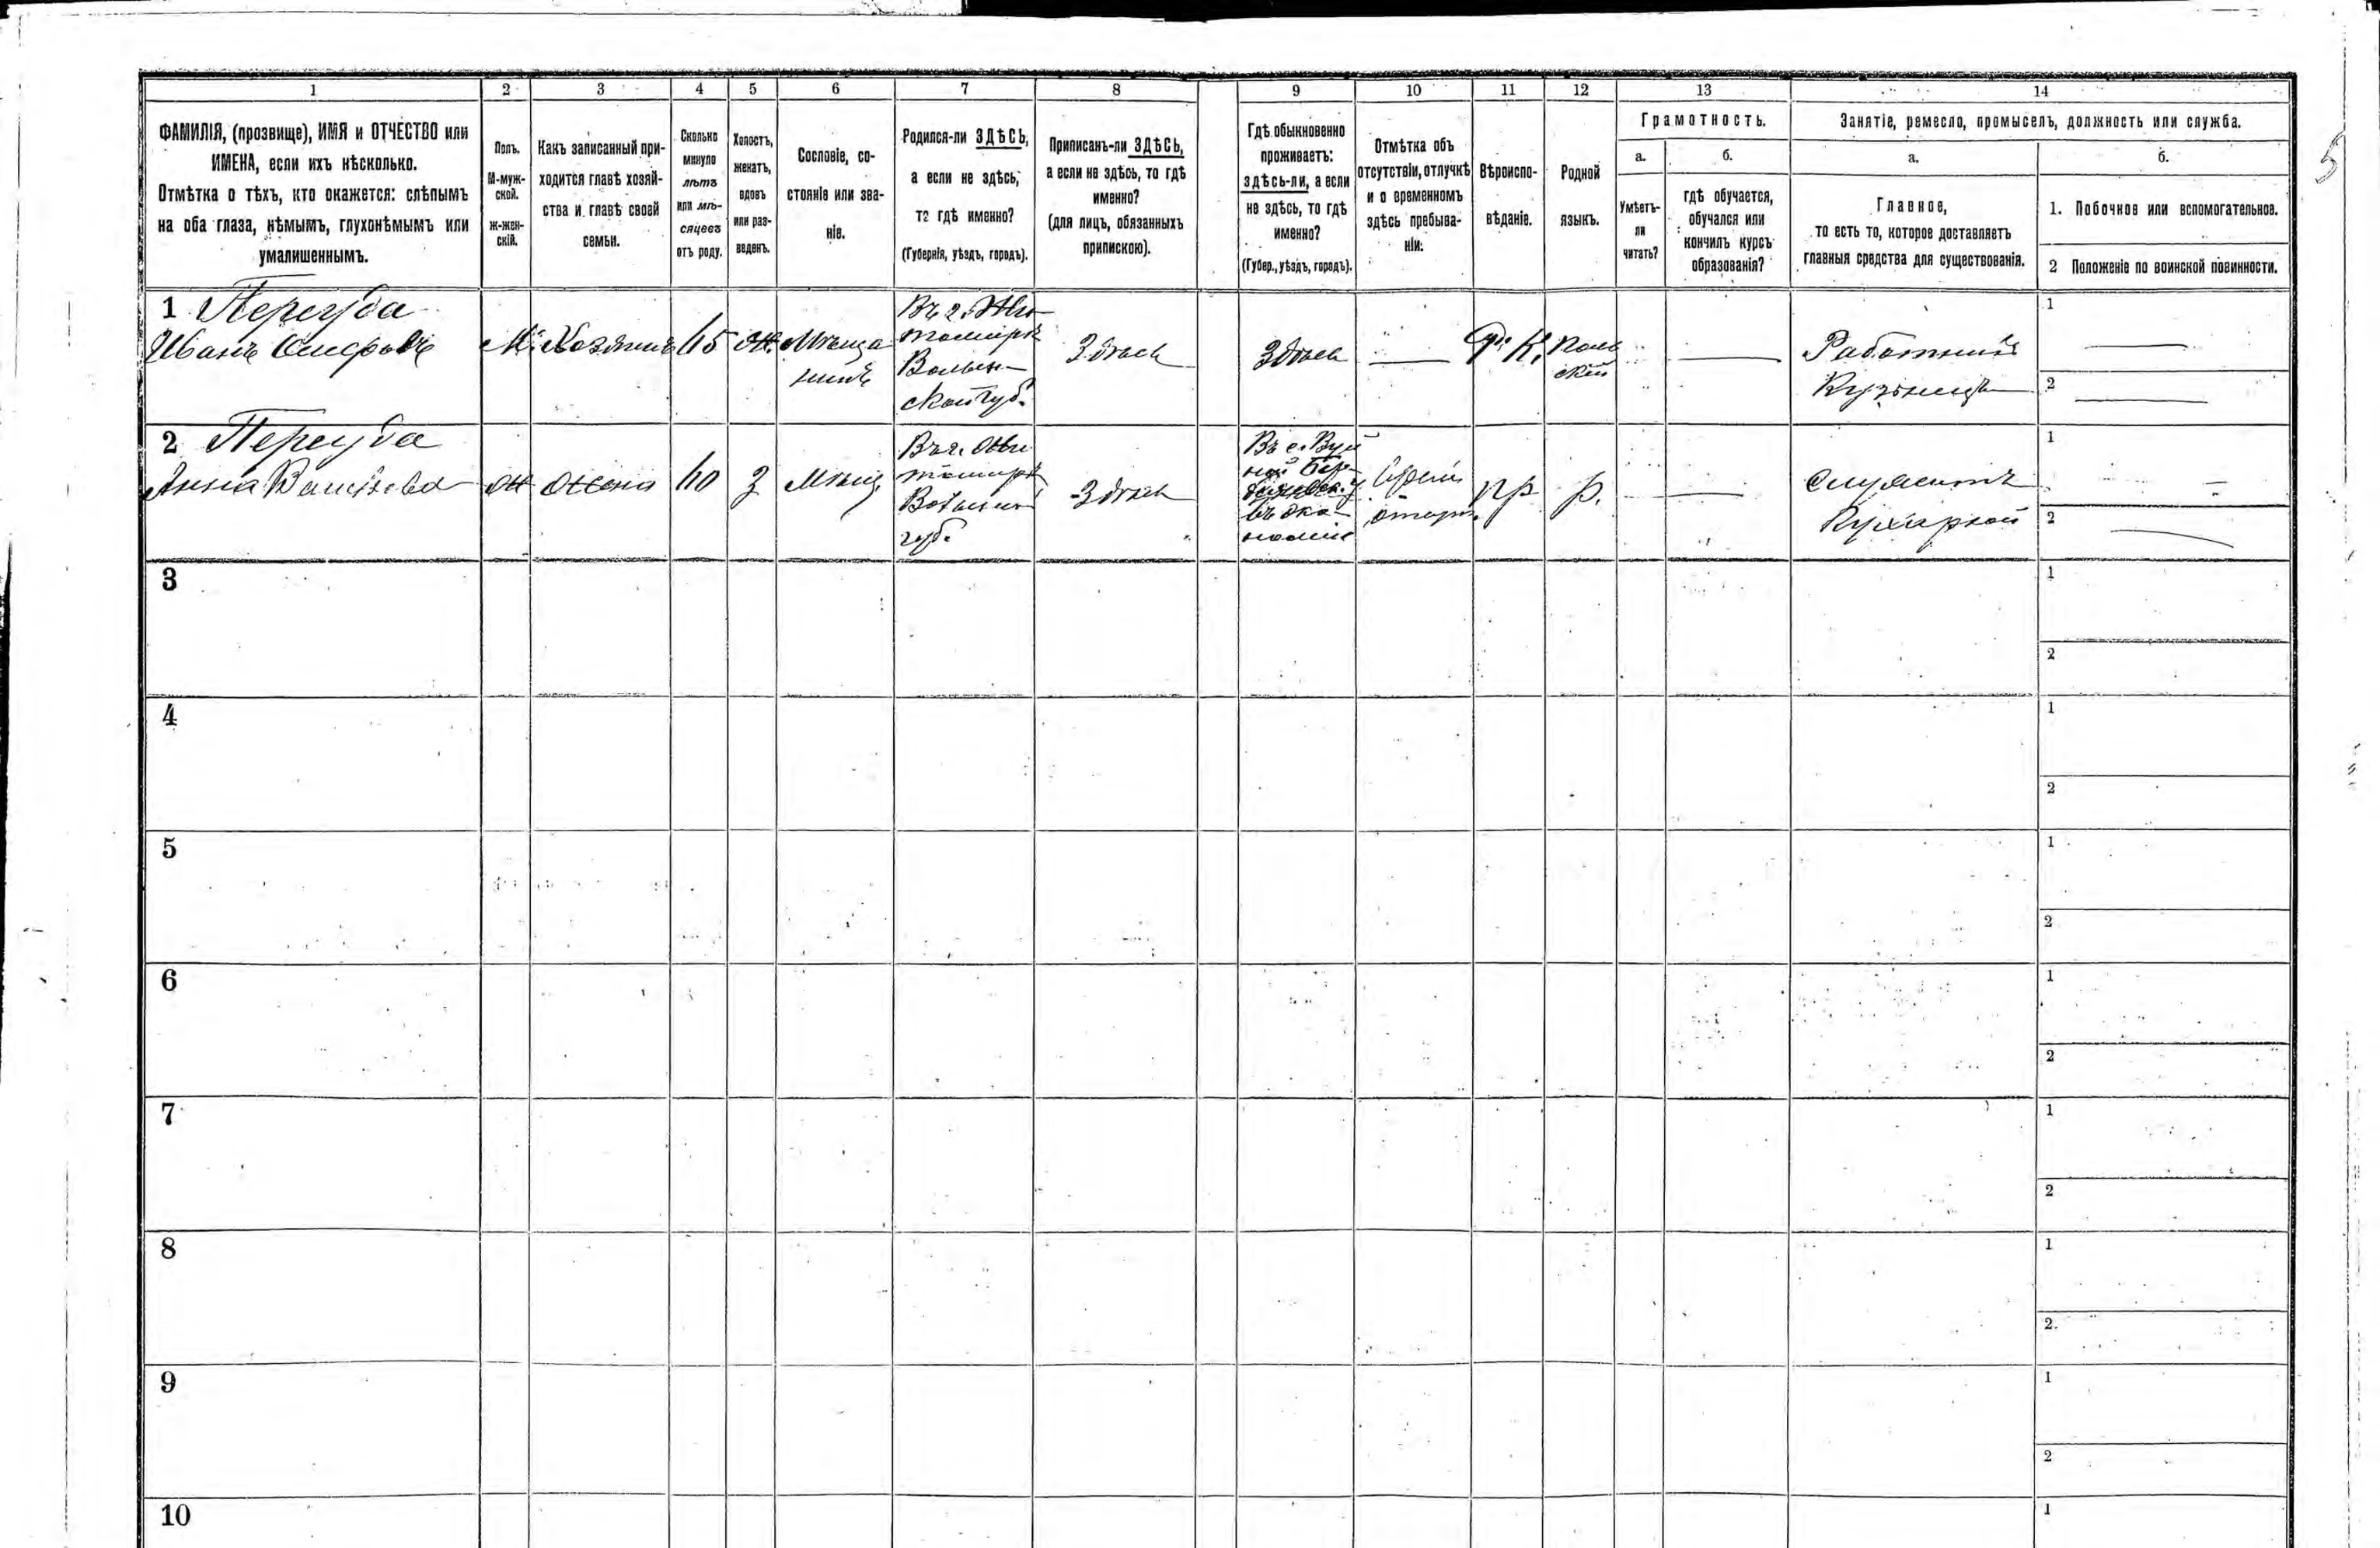 1
2
3
4
5
6
7
8
9
10
11
12
13
14
ФАМИЛІЯ, (прозвище), ИМЯ и ОТЧЕСТВО или
ИМЕНА, если ихъ нѣсколько.
Отмѣтка о тѣхъ, кто окажется: слѣпымъ
на оба глаза, нѣмымъ, глухонѣмымъ или
умалишеннымъ.
Полъ.
М-муж-
ской.
ж-жен-
скій.
Какъ записанный при-
ходится главѣ хозяй-
ства и главѣ своей
семьи.
Сколько
минуло
лѣтъ
или мѣ-
сяцевъ
отъ роду.
Холостъ,
женатъ,
вдовъ
или раз-
веденъ.
Сословіе, со-
стояніе или зва-
ніе.
Родился-ли ЗДѢСЬ,
а если не здѣсь,
то гдѣ именно?
(Губернія, уѣздъ, городъ).
Приписанъ-ли ЗДѢСЬ,
а если не здѣсь, то гдѣ
именно?
(для лицъ, обязанныхъ
припискою).
Гдѣ обыкновенно
проживаетъ:
здѣсь-ли, а если
не здѣсь, то гдѣ
именно?
(Губер., уѣздъ, городъ).
Отмѣтка объ
отсутствіи, отлучкѣ
и о временномъ
здѣсь пребыва-
ніи:
Вѣроиспо-
вѣданіе.
Родной
языкъ.
Грамотность.
а.
Умѣетъ-
ли
читать?
б.
гдѣ обучается,
обучался или
кончилъ курсъ
образованія?
Занятіе, ремесло, промыселъ, должность или служба.
а.
Главное,
то есть то, которое доставляетъ
главныя средства для существованія.
б.
1. Побочное или вспомогательное.
2 Положеніе по воинской повинности.
5
1 Перегуда
Иванъ
М.
Хозяинъ
45
Ж.
Мѣща
нинъ
Въ г. Жи-
томирѣ
Волын-
ской губ.
Здѣсь
Здѣсь
—
Р. К.
Поль
скій
—
Работникъ
Кузницѣ
1 —
2 —
2 Перегуда
Анна
Ж
Жена
40
З
Мѣщ.
Въ г. Жи
томирѣ
Волын
губ.
Здѣсь
Въ с.
въ эко-
номіи
пр
р.
—
Служитъ
Кухаркой
1 —
2 —
3
1
2
4
1
2
5
1
2
6
1
2
7
1
2
8
1
2.
9
1
2
10
1